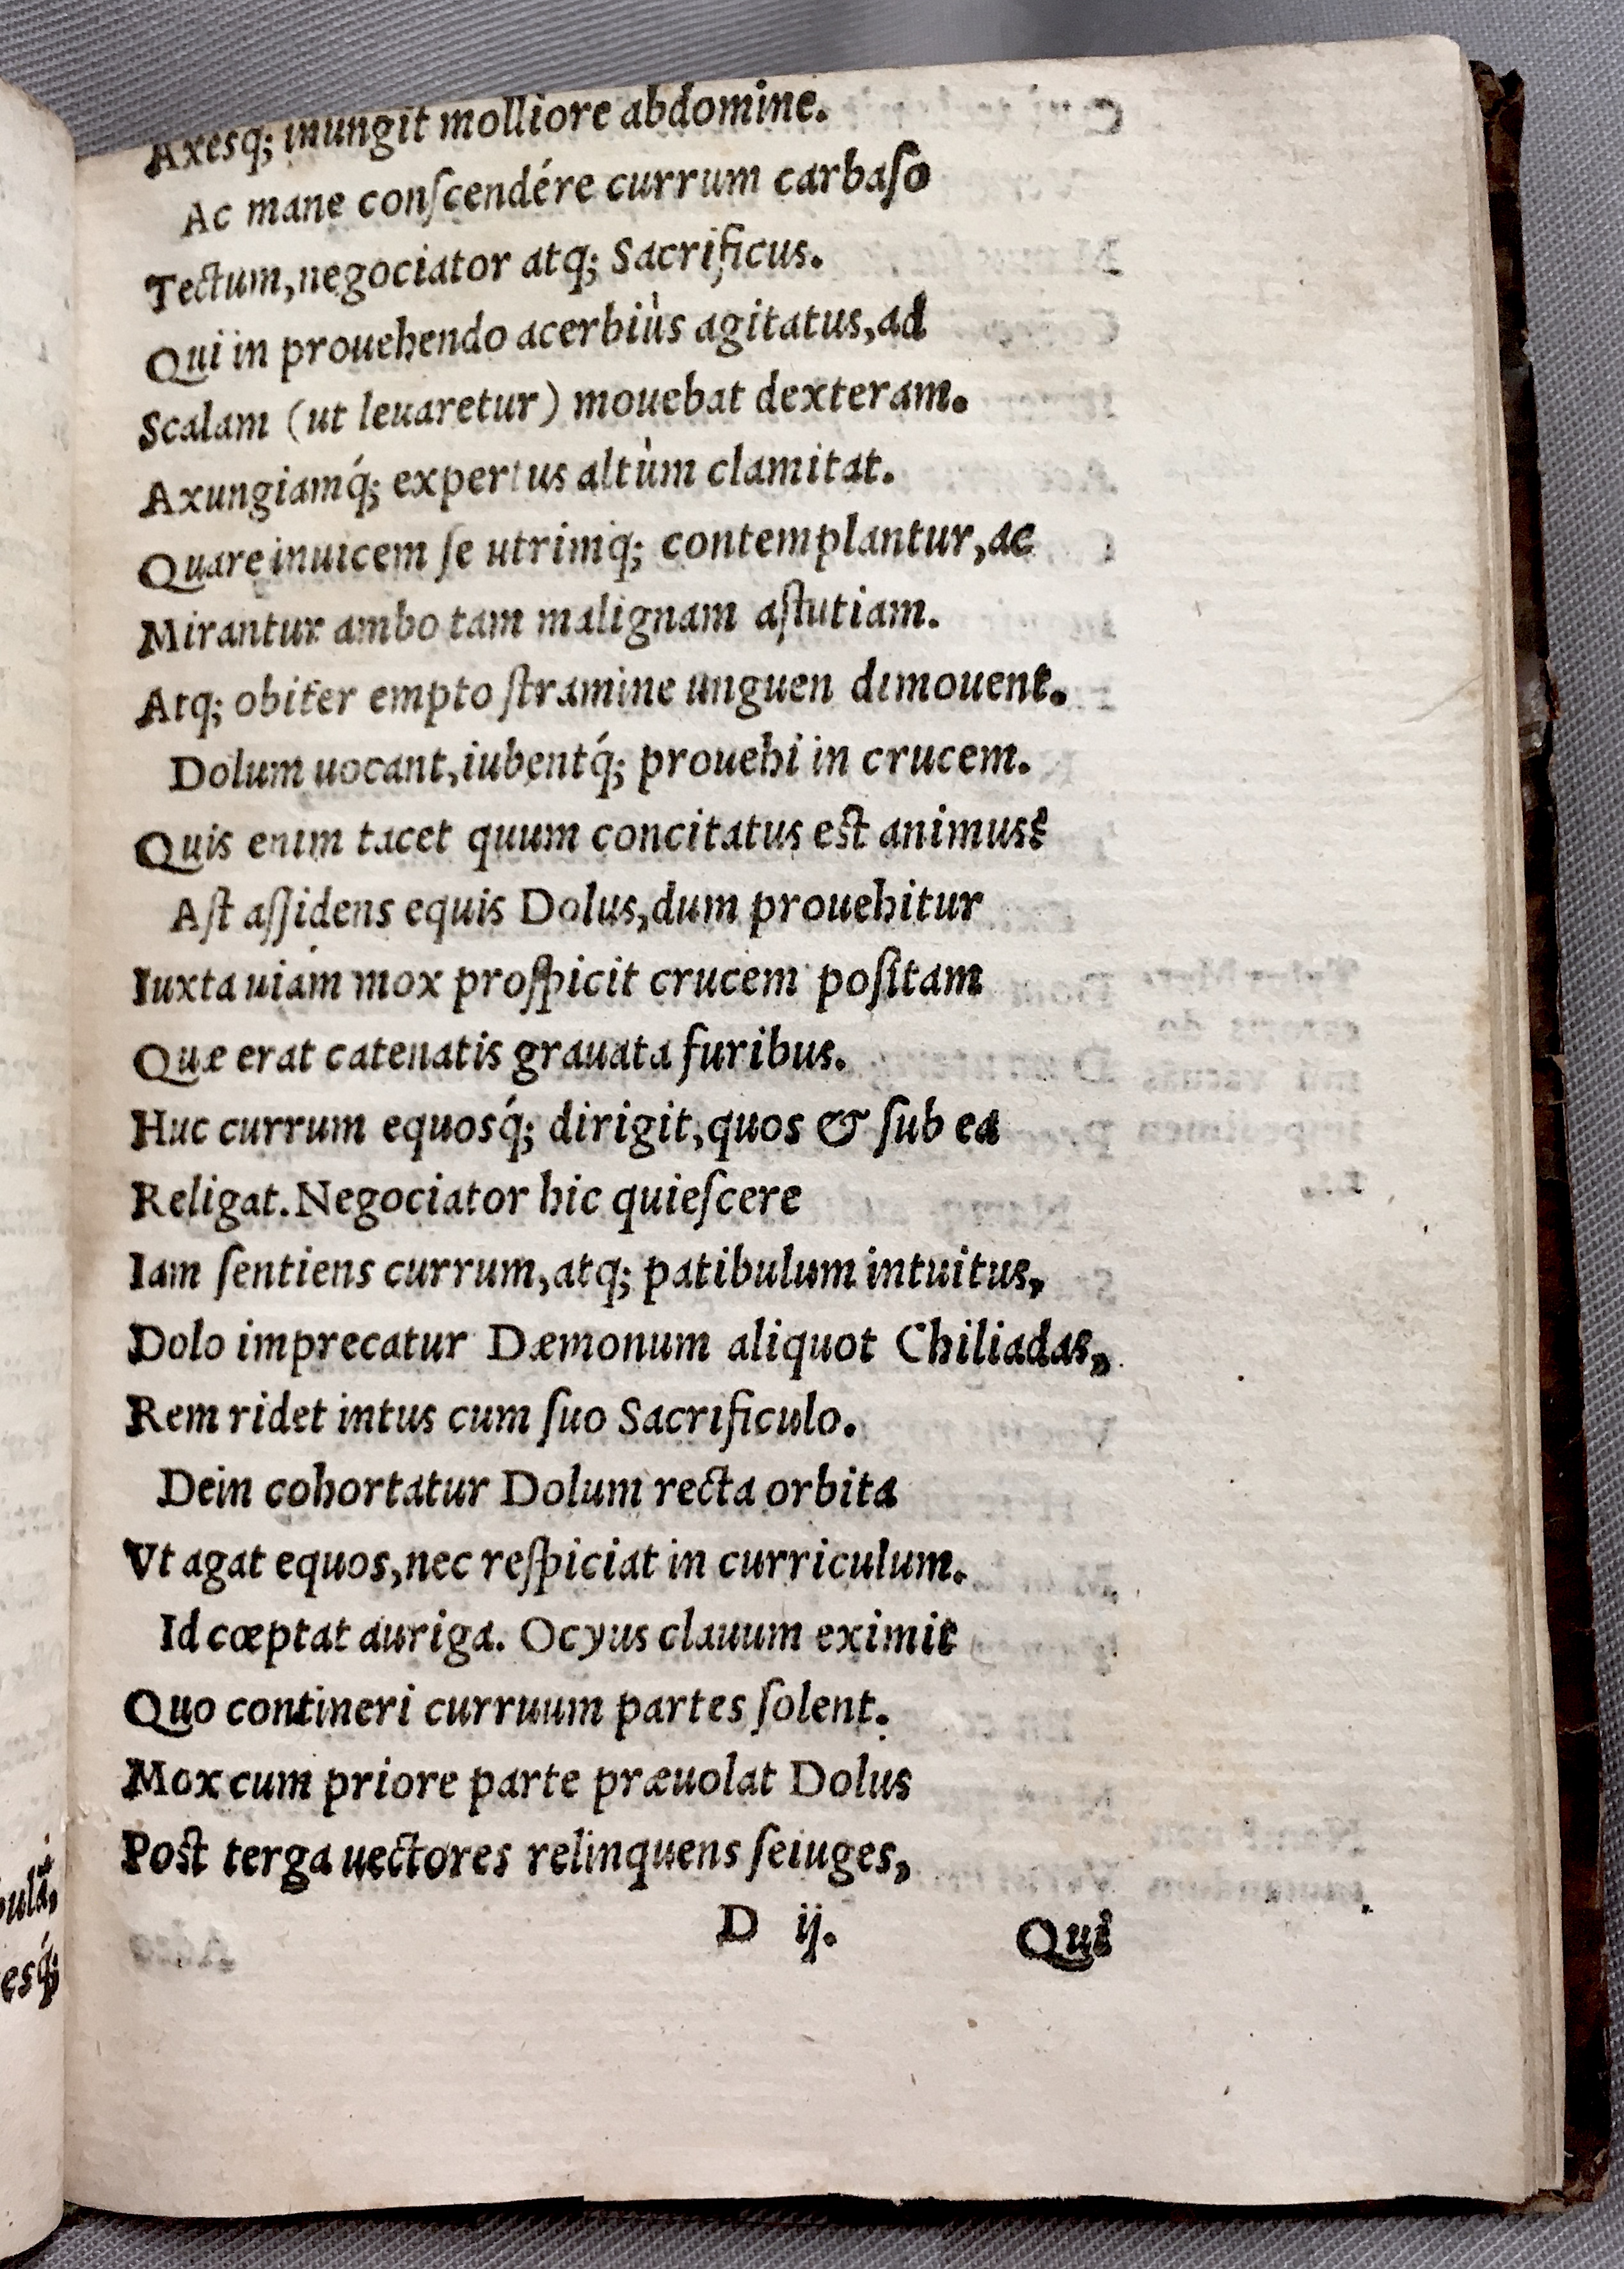 Axesq; inungit molliore abdomine.
Ac mane conſcendére currum carbaſo
Tectum, negociator atq; Sacrificus.
Qui in prouehendo acerbiùs agitatus, ad
Scalam (ut leuaretur) mouebat dexteram.
Axungiamq́; expertus altùm clamitat.
Quare inuicem ſe utrimq; contemplantur, ac
Mirantur ambo tam malignam aſtutiam.
Atq; obiter empto ſtramine unguen dimouent.
Dolum uocant, iubentq́; prouehi in crucem.
Quis enim tacet quum concitatus est animus?
Aſt aſſidens equis Dolus, dum prouehitur
Iuxta uiam mox proſpicit crucem poſitam
Quæ erat catenatis grauata furibus.
Huc currum equosq́; dirigit, quos & ſub ea
Religat. Negociator hic quieſcere
Iam ſentiens currum, atq; patibulum intuitus,
Dolo imprecatur Dæmonum aliquot Chiliadas,
Rem ridet intus cum ſuo Sacrificulo.
Dein cohortatur Dolum recta orbita
Vt agat equos, nec reſpiciat in curriculum.
Id cœptat auriga. Ocyus clauum eximit
Quo contineri curruum partes ſolent.
Mox cum priore parte præuolat Dolus
Post terga uectores relinquens ſeiuges,
D ij. Qui